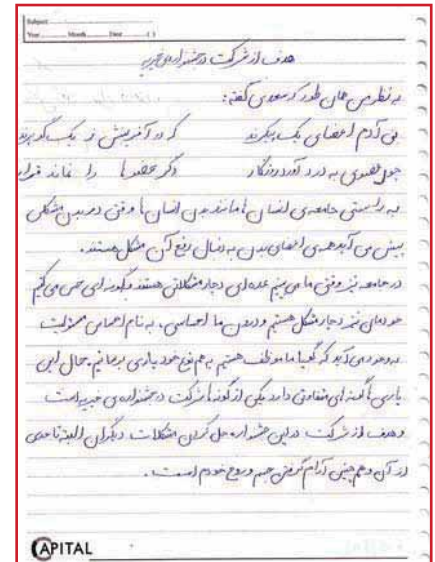 Subject
Year Month Date ( )
هدف از شرکت در جشنواره‌ی خیریه
به نظر من همان طور که سعدی گفته:
بنی آدم اعضای یک پیکرند که در آفرینش ز یک گوهرند
چو عضوی به درد آورد روزگار دگر عضوها را نماند قرار
به راستی جامعه‌ی انسان‌ها مانند بدن انسان‌ها وقتی در بدن مشکلی
پیش می آید همه‌ی اعضای بدن به دنبال رفع آن مشکل هستند.
در جامعه نیز وقتی ما می بینیم عده‌ای دچار مشکلاتی هستند به گونه‌ای حس می کنیم
خودمان نیز دچار مشکل هستیم و درون ما احساسی، به نام احساس مسئولیت
به وجود می آید که گویا ما موظف هستیم به هم نوع خود یاری برسانیم. حال این
یاری گونه‌های متفاوتی دارد یکی از گونه‌ها شرکت در جشنواره‌ی خیریه است
و هدف از شرکت در این جشنواره حل کردن مشکلات دیگران البته تا حدی
از آن و هم چنین آرام گرفتن جسم و روح خودم است.
CAPITAL